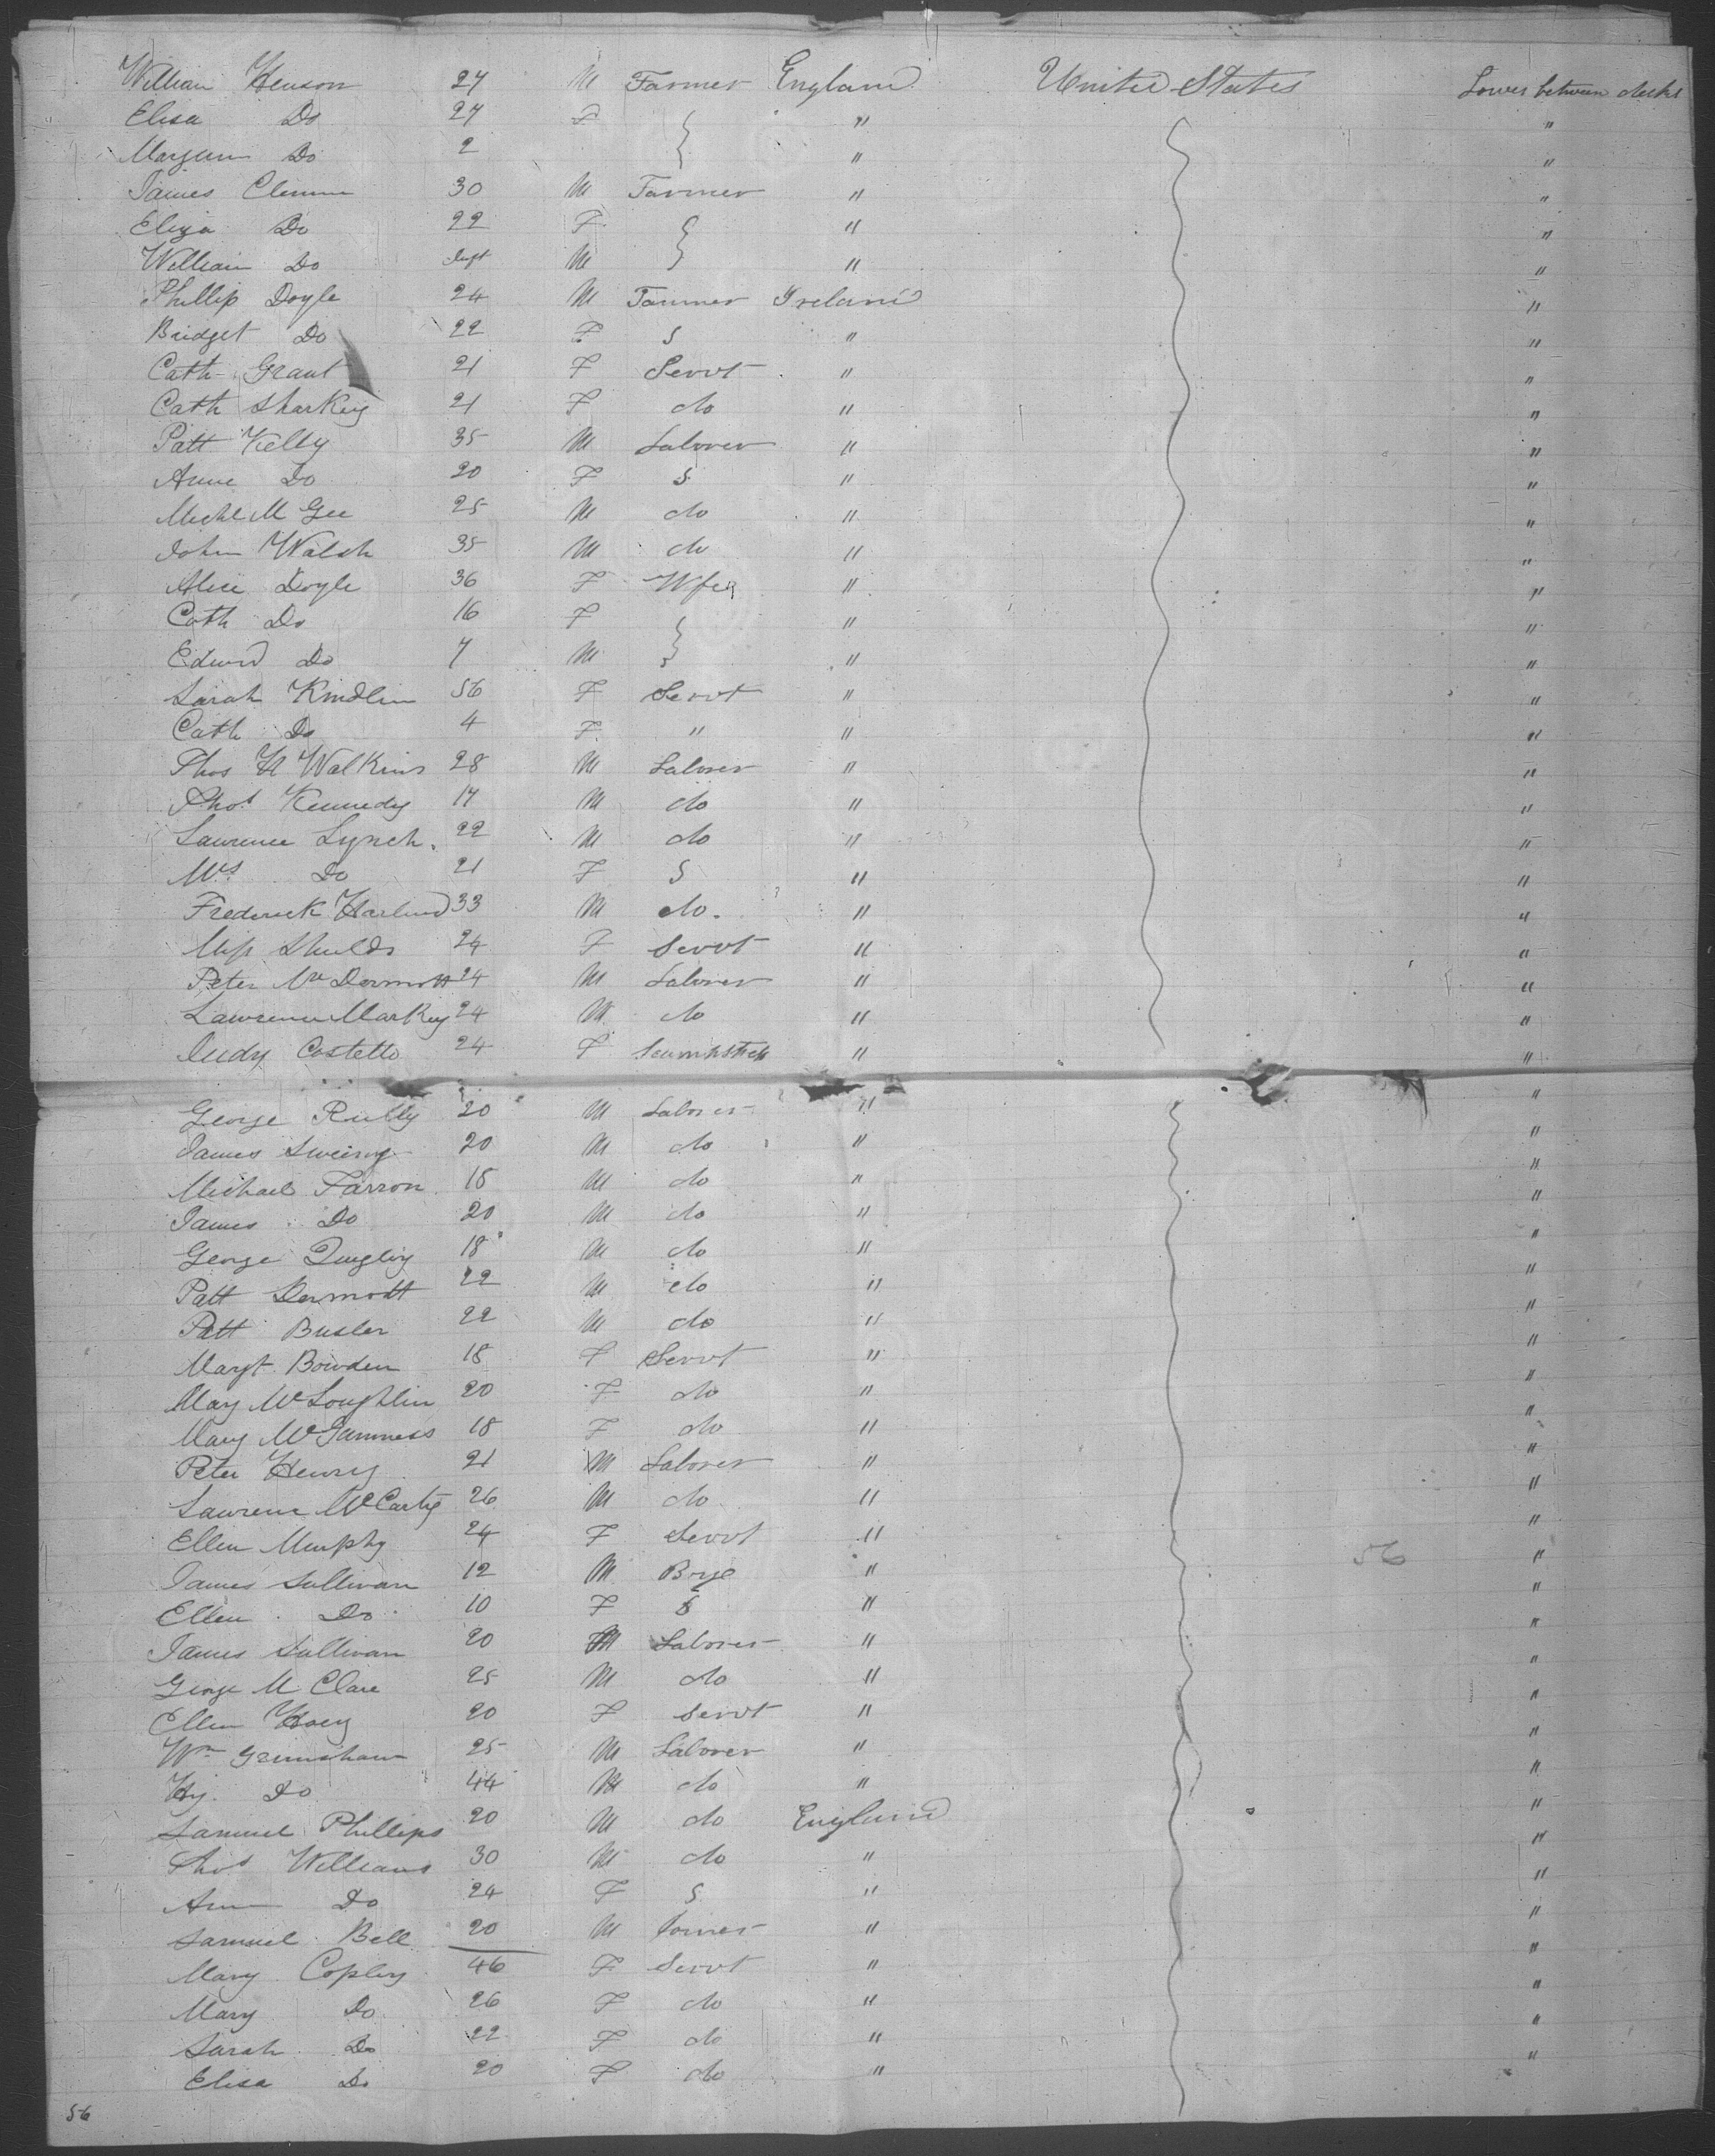 William Henson 27 M Farmer England United States Lower between decks
Elisa Do 27 F } " "
Margann Do 2 " "
James Climm 30 M Farmer " "
Eliza Do 22 F } " "
William Do Inft M " "
Phillip Doyle 24 M Farmer Ireland "
Bridget Do 22 F " "
Cath Grant 21 F Servt " "
Cath Sharkey 21 F do " "
Patt Kelly 35 M Laborer " "
Anne Do 20 F " "
Michl M Gee 25 M do " "
John Walsh 35 M do " "
Alice Doyle 36 F Wife " "
Cath Do 16 F } " "
Edward Do 7 M " "
Sarah Kindlin 56 F Servt " "
Cath Do 4 F " " "
Thos H Walkins 28 M Laborer " "
Thos Kennedy 17 M do " "
Lawrence Lynch. 22 M do " "
Mrs Do 21 F " "
Frederick Harland 33 M do. " "
Miss Shields 24 F Servt " "
Peter Mc Dermott 24 M Laborer " "
Lawrence Markey 24 M do " "
Judy Costello 24 F " "
George Reilly 20 M Laborer " "
James Sweeny 20 M do " "
Michael Farron 18 M do " "
James Do 20 M do " "
George Quigley 18 M do " "
Patt Dermott 22 M do " "
Patt Busler 22 M do " "
Margt Bowden 18 F Servt " "
Mary McLoughlin 20 F do " "
Mary McGuinness 18 F do " "
Peter Henry 21 M Laborer " "
Lawrence McCarty 26 M do " "
Ellen Murphy 24 F Servt " "
James Sullivan 12 M Boy " 56 "
Ellen Do 10 F " "
James Sullivan 20 M Laborer " "
George M Clare 25 M do " "
Ellen Hoey 20 F Servt " "
Wm Grimshaw 25 M Laborer " "
Hy. Do 44 M do " "
Samuel Phillips 20 M do England "
Thos Williams 30 M do " "
Ann Do 24 F " "
Samuel Bell 20 M " "
Mary Copley 46 F Servt " "
Mary Do 26 F do " "
Sarah Do 22 F do " "
Elisa Do 20 F do "
56